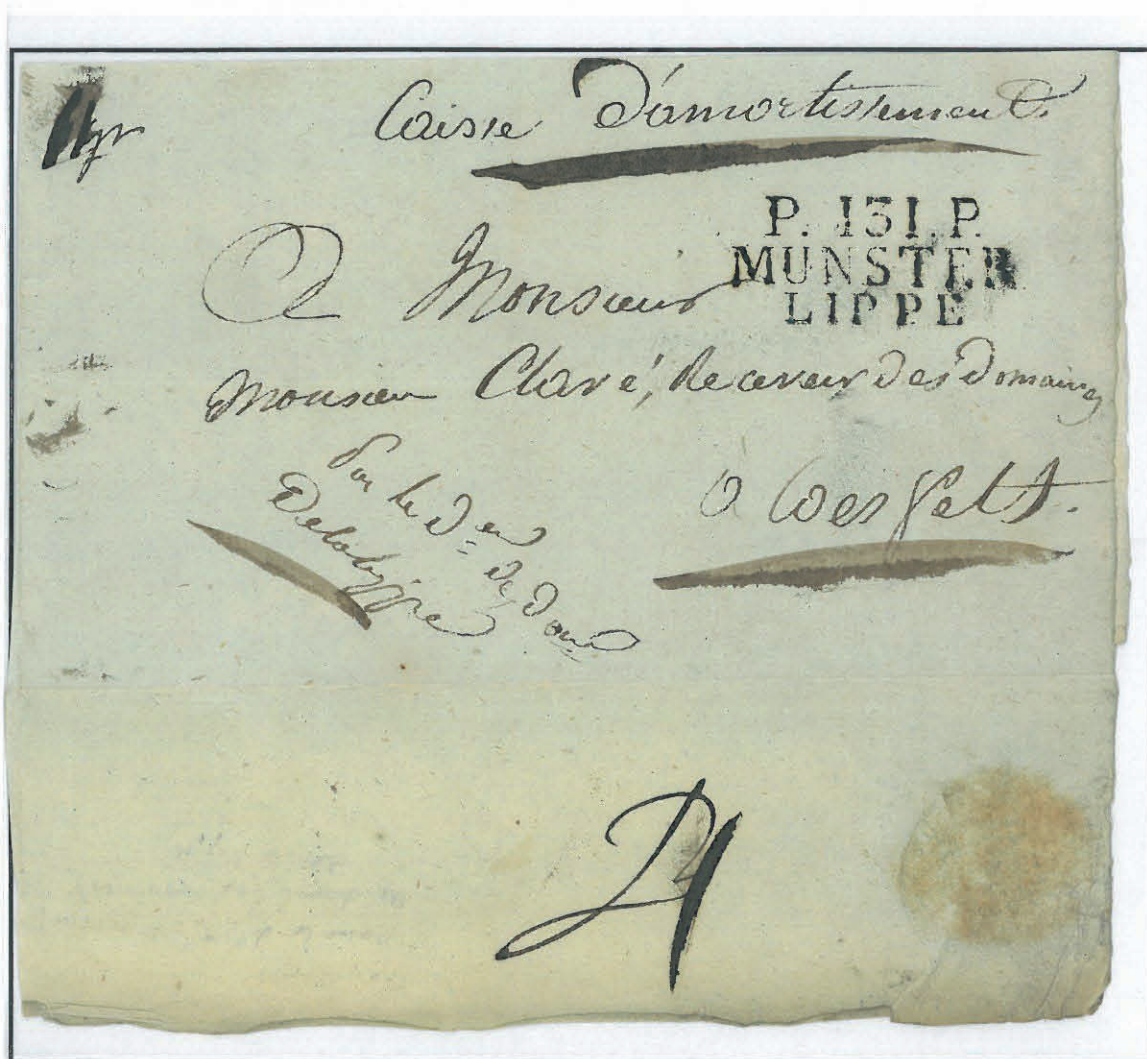 Caisse d'amortissement.
P. 131. P.
MUNSTER
LIPPE
A Monsieur
Monsieur Claré, Receveur des Domaines
à Coesfelt.
par le
Delalippe